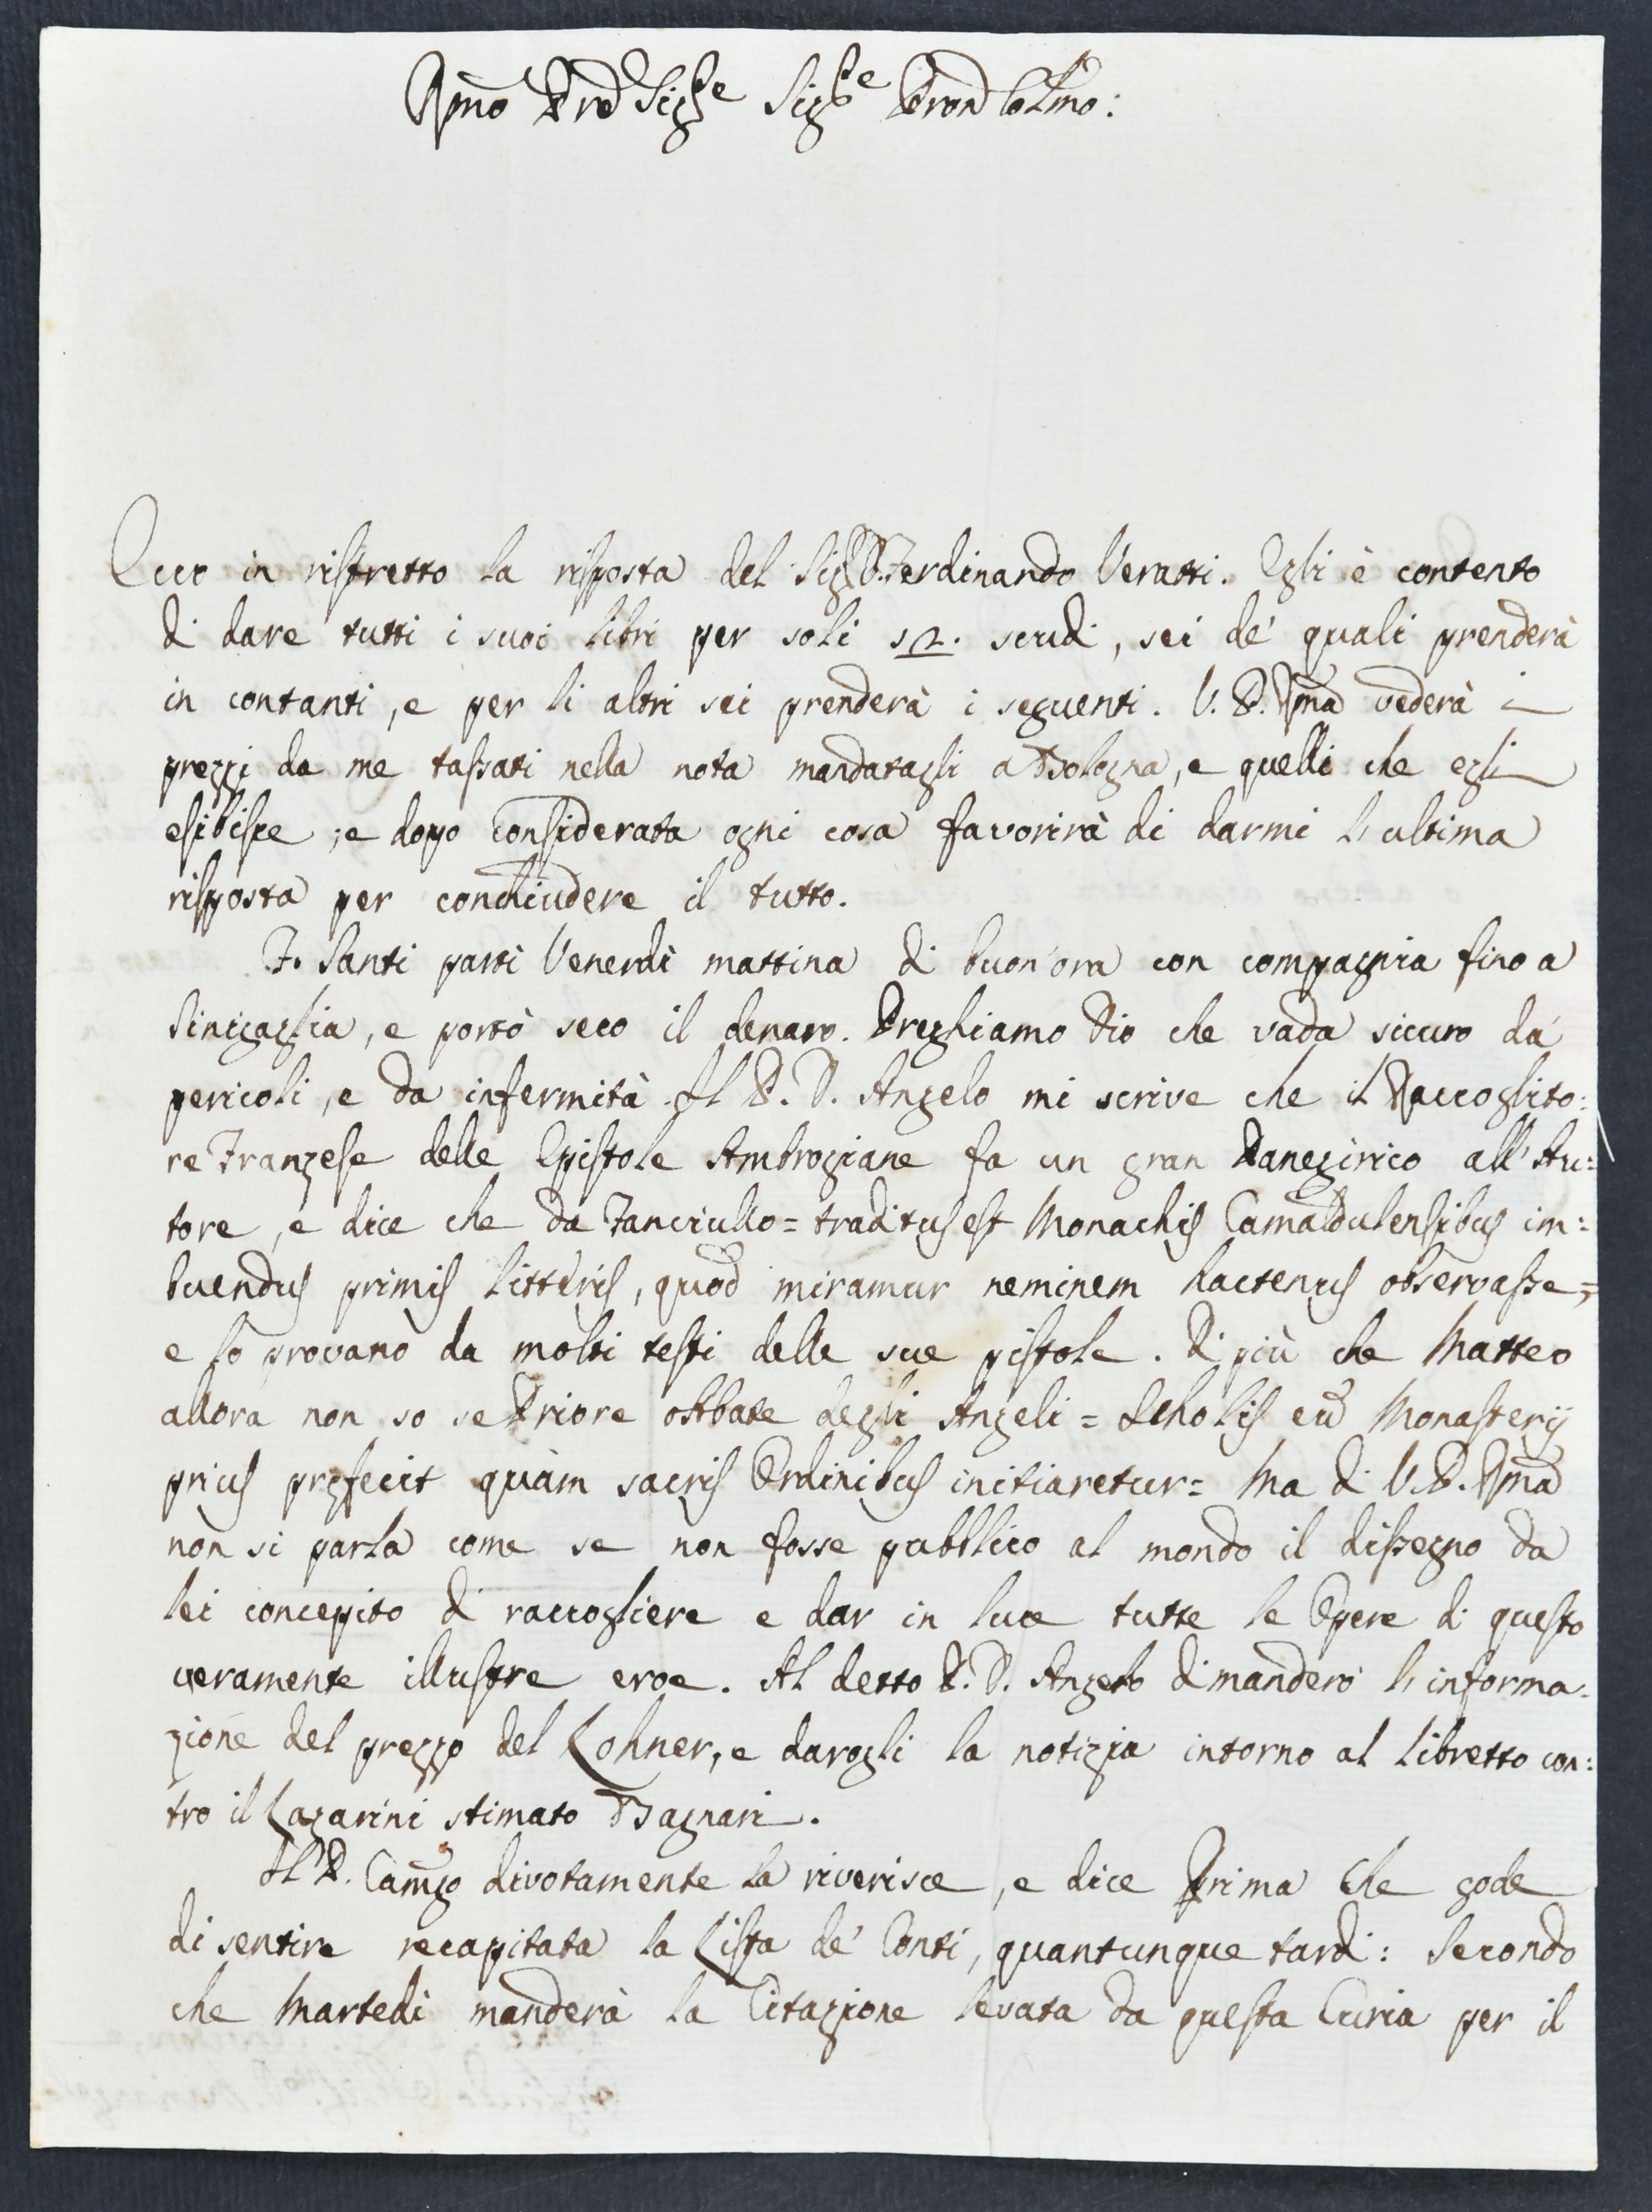 Rmo Pre Sigre Sigre Pron Colmo:
Ecco in ristretto la risposta del Sig. D. Ferdinando Veratti. Egli è contento
di dare tutti i suoi libri per soli 12. scudi, sei de' quali prenderà
in contanti, e per li altri sei prenderà i seguenti. V. P. Rma vederà i
prezzi da me tassati nella nota mandatagli a Bologna, e quelli che egli
esibisce; e dopo considerata ogni cosa favorirà di darmi l'ultima
risposta per conchiudere il tutto.
F. Santi partì Venerdì mattina di buon'ora con compagnia fino a
Sinigaglia, e portò seco il denaro. Preghiamo Dio che vada sicuro da'
pericoli, e da infermità. Il P. D. Angelo mi scrive che il Raccoglito:
re Franzese delle Epistole Ambrogiane fa un gran Panegirico all'Au:
tore, e dice che da Fanciullo = traditus est Monachis Camaldulensibus im:
buendus primis litteris, quod miramur neminem hactenus observasse, =
e lo provano da molti testi delle sue pistole. Di più che Matteo
allora non so se Priore o Abbate degli Angeli = Scholis eum Monasterij
prius præfecit quàm sacris Ordinibus initiaretur = Ma di V. P. Rma
non si parla come se non fosse pubblico al mondo il dissegno da
lei concepito di raccogliere e dar in luce tutte le Opere di questo
veramente illustre eroe. Al detto P. D. Angelo dimanderò l'informa:
zione del prezzo del Lohner, e darogli la notizia intorno al libretto con:
tro il Lazarini stimato Bagnari.
Il P. Camgo divotamente la riverisce, e dice Prima che gode
di sentire recapitata la Lista de' Conti, quantunque tardi: Secondo
che Martedi manderà la Citazione levata da questa Curia per il